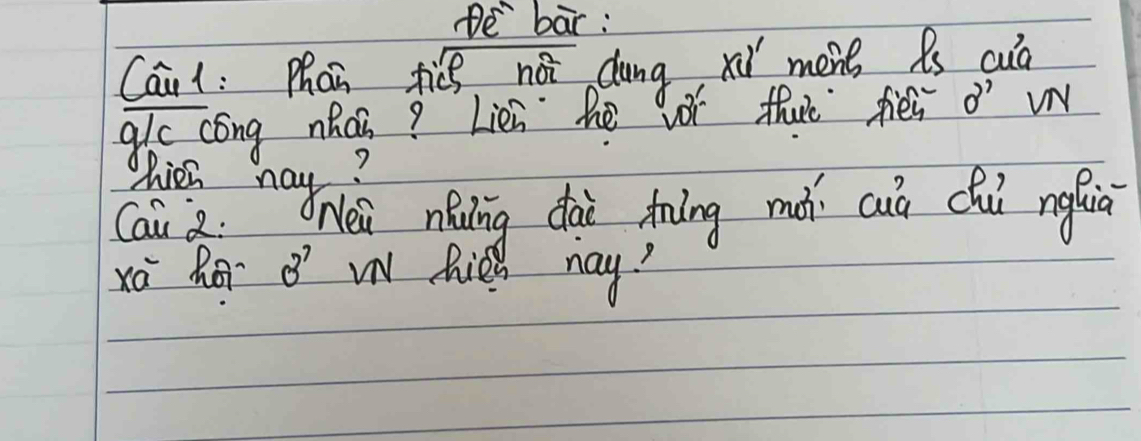 Đề bài:
Câu 1: Phân tích nội dung sứ mệnh ls của
g/c công nhân? Liên hệ với thực tiễn ở VN
hiện nay?
Câu 2: Nêu những đặc trưng mới của chủ nghĩa
xã hội ở VN hiện nay?